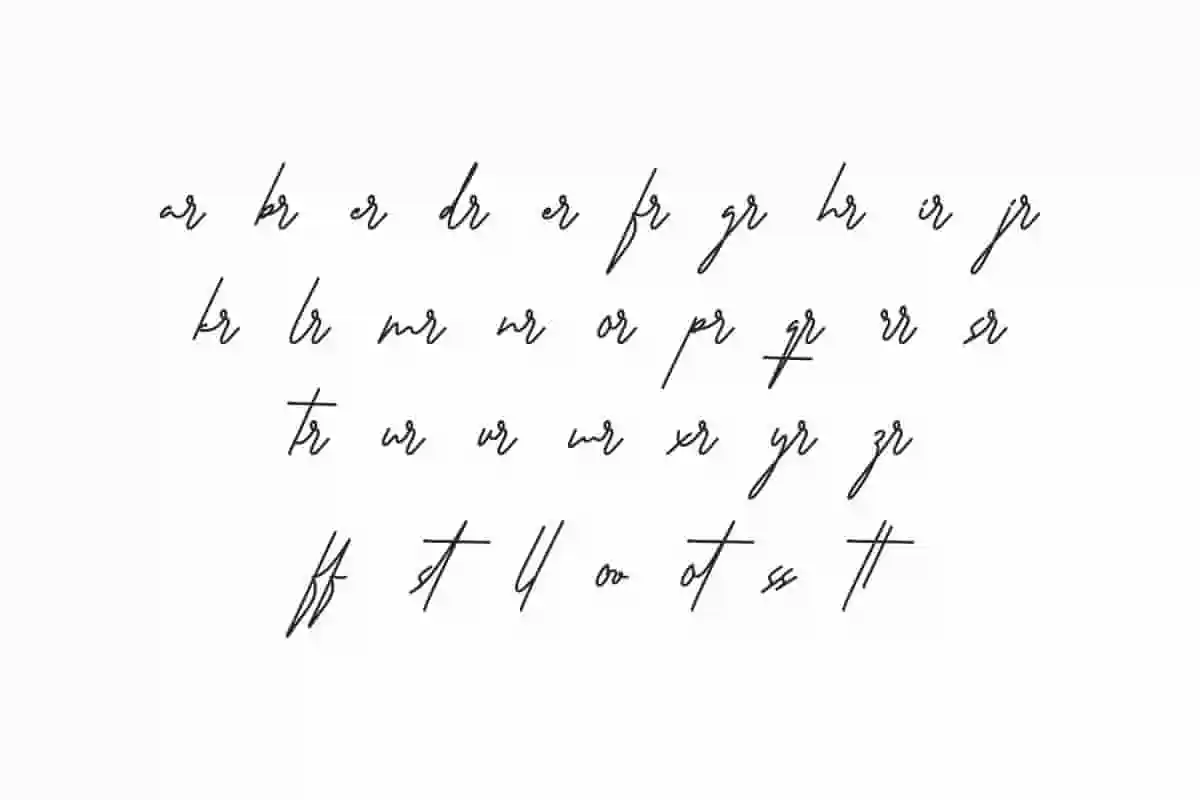 ar br cr dr er fr gr hr ir jr
kr lr mr nr or pr qr rr sr
tr ur vr wr xr yr zr
ff st ll oo ot ss tt